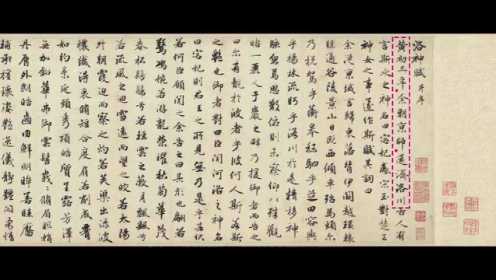 洛神賦 并序
黃初三年余朝京師還濟洛川古人有
言斯水之神名曰宓妃感宋玉對楚王
神女之事遂作斯賦其詞曰
余從京域言歸東藩背伊闕越轘轅
經通谷陵景山日既西傾車殆馬煩爾
乃稅駕乎蘅皋秣駟乎芝田容與
乎楊林流眄乎洛川於是精移神
駭忽焉思散俯則未察仰以殊觀
睹一麗人于巖之畔乃援御者而告之
曰爾有覿於彼者乎彼何人斯若斯
之豔也御者對曰臣聞河洛之神名
曰宓妃則君王之所見無乃是乎其狀
若何臣願聞之余告之曰其形也翩若
驚鴻婉若游龍榮曜秋菊華茂
春松髣髴兮若輕雲之蔽月飄颻兮
若流風之迴雪遠而望之皎若太陽
升朝霞迫而察之灼若芙蕖出淥波
穠纖得衷脩短合度肩若削成腰
如約素延頸秀項皓質呈露芳澤
無加鉛華弗御雲髻峩峩脩眉聯娟
丹脣外朗皓齒內鮮明眸善睞靨
輔承權瓌姿豔逸儀靜體閑柔情